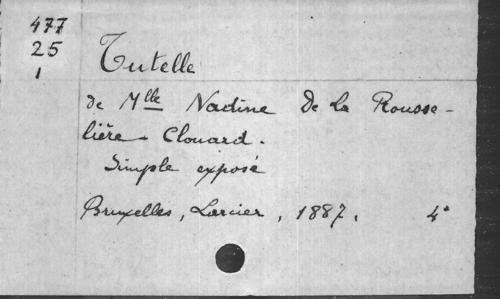 477
25
1
Tutelle
de Mlle Nadine De La Rousse-
lière-Clouard.
Simple exposé
Bruxelles, Larcier, 1887. 4°